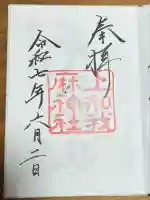 奉拝
上知我
麻神社
令和七年六月二日